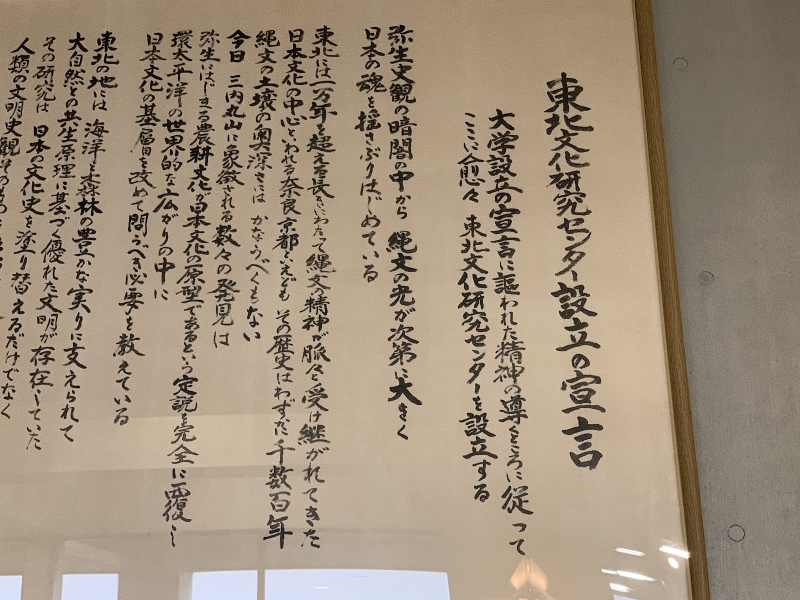 東北文化研究センター設立の宣言
大学設立の宣言に謳われた精神の導くところに従って
ここに愈々 東北文化研究センターを設立する
弥生史観の暗闇の中から 縄文の光が次第に大きく
日本の魂を揺さぶりはじめている
東北には一万年を超える長きにわたって縄文の精神が脈々と受け継がれてきた
日本文化の中心といわれる奈良京都といえども その歴史はわずか千数百年
縄文の土壌の奥深さには かなうべくもない
今日 三内丸山に象徴される数々の発見は
弥生にはじまる農耕文化が日本文化の原型であるという定説を完全に覆し
環太平洋の世界的な広がりの中に
日本文化の基層を改めて問うべき必要を教えている
東北の地には 海洋と森林の豊かな実りに支えられて
大自然との共生原理に基づく優れた文明が存在していた
その研究は 日本の文化史を塗り替えるだけでなく
人類の文明史観そのものを